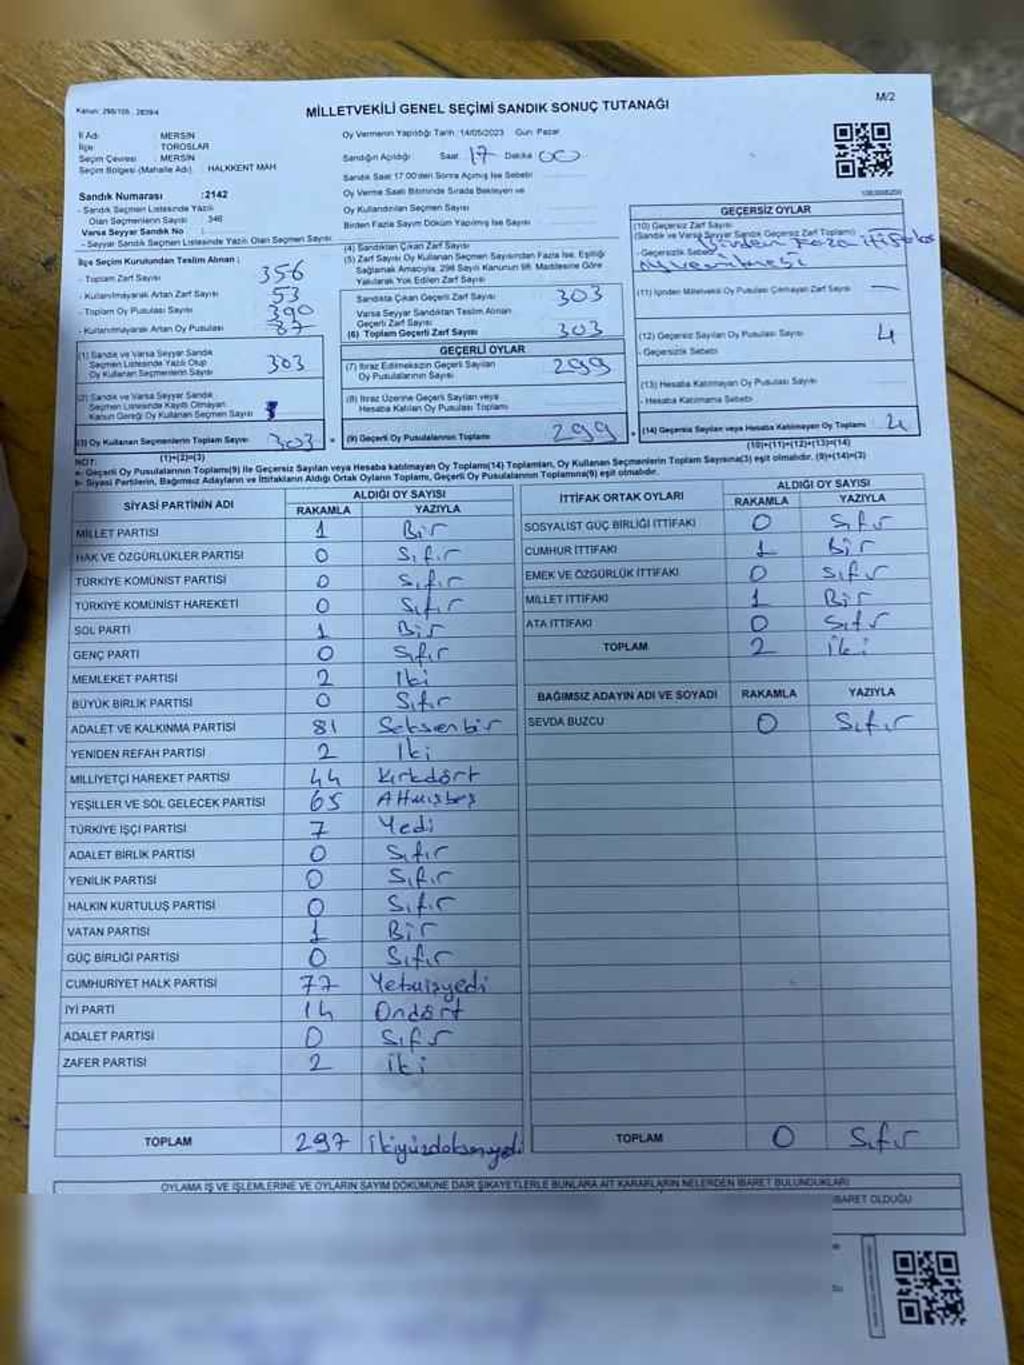 Kanun: 298/105 , 2839/4
MİLLETVEKİLİ GENEL SEÇİMİ SANDIK SONUÇ TUTANAĞI
M/2
İl Adı : MERSİN
İlçe : TOROSLAR
Seçim Çevresi : MERSİN
Seçim Bölgesi (Mahalle Adı) : HALKKENT MAH
Sandık Numarası : 2142
- Sandık Seçmen Listesinde Yazılı
Olan Seçmenlerin Sayısı : 346
Varsa Seyyar Sandık No :
- Seyyar Sandık Seçmen Listesinde Yazılı Olan Seçmen Sayısı :
İlçe Seçim Kurulundan Teslim Alınan ;
- Toplam Zarf Sayısı 356
- Kullanılmayarak Artan Zarf Sayısı 53
- Toplam Oy Pusulası Sayısı 390
- Kullanılmayarak Artan Oy Pusulası 87
(1) Sandık ve Varsa Seyyar Sandık
Seçmen Listesinde Yazılı Olup
Oy Kullanan Seçmenlerin Sayısı 303
(2) Sandık ve Varsa Seyyar Sandık
Seçmen Listesinde Kayıtlı Olmayan
Kanun Gereği Oy Kullanan Seçmen Sayısı
(3) Oy Kullanan Seçmenlerin Toplam Sayısı 303 =
(1)+(2)=(3)
Oy Vermenin Yapıldığı Tarih :14/05/2023 Gün: Pazar
Sandığın Açıldığı Saat 17 Dakika 00
Sandık Saat 17:00'den Sonra Açılmış İse Sebebi
Oy Verme Saati Bitiminde Sırada Bekleyen ve
Oy Kullandırılan Seçmen Sayısı
Birden Fazla Sayım Döküm Yapılmış İse Sayısı
(4) Sandıktan Çıkan Zarf Sayısı
(5) Zarf Sayısı Oy Kullanan Seçmen Sayısından Fazla İse, Eşitliği
Sağlamak Amacıyla, 298 Sayılı Kanunun 98. Maddesine Göre
Yakılarak Yok Edilen Zarf Sayısı
Sandıkta Çıkan Geçerli Zarf Sayısı 303
Varsa Seyyar Sandıktan Teslim Alınan
Geçerli Zarf Sayısı
(6) Toplam Geçerli Zarf Sayısı 303
GEÇERLİ OYLAR
(7) İtiraz Edilmeksizin Geçerli Sayılan
Oy Pusulalarının Sayısı 299
(8) İtiraz Üzerine Geçerli Sayılan veya
Hesaba Katılan Oy Pusulası Toplamı
(9) Geçerli Oy Pusulalarının Toplamı 299 +
GEÇERSİZ OYLAR
(10) Geçersiz Zarf Sayısı
(Sandık ve Varsa Seyyar Sandık Geçersiz Zarf Toplamı)
- Geçersizlik Sebebi Birden Fazla ittifaka
oy verilmesi
(11) İçinden Milletvekili Oy Pusulası Çıkmayan Zarf Sayısı —
(12) Geçersiz Sayılan Oy Pusulası Sayısı 4
- Geçersizlik Sebebi
(13) Hesaba Katılmayan Oy Pusulası Sayısı
- Hesaba Katılmama Sebebi
(14) Geçersiz Sayılan veya Hesaba Katılmayan Oy Toplamı 4
(10)+(11)+(12)+(13)=(14)
NOT:
a- Geçerli Oy Pusulalarının Toplamı(9) ile Geçersiz Sayılan veya Hesaba katılmayan Oy Toplamı(14) Toplamları, Oy Kullanan Seçmenlerin Toplam Sayısına(3) eşit olmalıdır. (9)+(14)=(3)
b- Siyasi Partilerin, Bağımsız Adayların ve İttifakların Aldığı Ortak Oyların Toplamı, Geçerli Oy Pusulalarının Toplamına(9) eşit olmalıdır.
SİYASİ PARTİNİN ADI ALDIĞI OY SAYISI
RAKAMLA YAZIYLA
MİLLET PARTİSİ 1 Bir
HAK VE ÖZGÜRLÜKLER PARTİSİ 0 Sıfır
TÜRKİYE KOMÜNİST PARTİSİ 0 Sıfır
TÜRKİYE KOMÜNİST HAREKETİ 0 Sıfır
SOL PARTİ 1 Bir
GENÇ PARTİ 0 Sıfır
MEMLEKET PARTİSİ 2 İki
BÜYÜK BİRLİK PARTİSİ 0 Sıfır
ADALET VE KALKINMA PARTİSİ 81 Seksenbir
YENİDEN REFAH PARTİSİ 2 İki
MİLLİYETÇİ HAREKET PARTİSİ 44 Kırkdört
YEŞİLLER VE SOL GELECEK PARTİSİ 65 Altmışbeş
TÜRKİYE İŞÇİ PARTİSİ 7 Yedi
ADALET BİRLİK PARTİSİ 0 Sıfır
YENİLİK PARTİSİ 0 Sıfır
HALKIN KURTULUŞ PARTİSİ 0 Sıfır
VATAN PARTİSİ 1 Bir
GÜÇ BİRLİĞİ PARTİSİ 0 Sıfır
CUMHURİYET HALK PARTİSİ 77 Yetmişyedi
İYİ PARTİ 14 Ondört
ADALET PARTİSİ 0 Sıfır
ZAFER PARTİSİ 2 iki
TOPLAM 297 ikiyüzdoksanyedi
İTTİFAK ORTAK OYLARI ALDIĞI OY SAYISI
RAKAMLA YAZIYLA
SOSYALİST GÜÇ BİRLİĞİ İTTİFAKI 0 Sıfır
CUMHUR İTTİFAKI 1 Bir
EMEK VE ÖZGÜRLÜK İTTİFAKI 0 Sıfır
MİLLET İTTİFAKI 1 Bir
ATA İTTİFAKI 0 Sıfır
TOPLAM 2 İki
BAĞIMSIZ ADAYIN ADI VE SOYADI RAKAMLA YAZIYLA
SEVDA BUZCU 0 Sıfır
TOPLAM 0 Sıfır
OYLAMA İŞ VE İŞLEMLERİNE VE OYLARIN SAYIM DÖKÜMÜNE DAİR ŞİKAYETLERLE BUNLARA AİT KARARLARIN NELERDEN İBARET BULUNDUKLARI
İBARET OLDUĞU